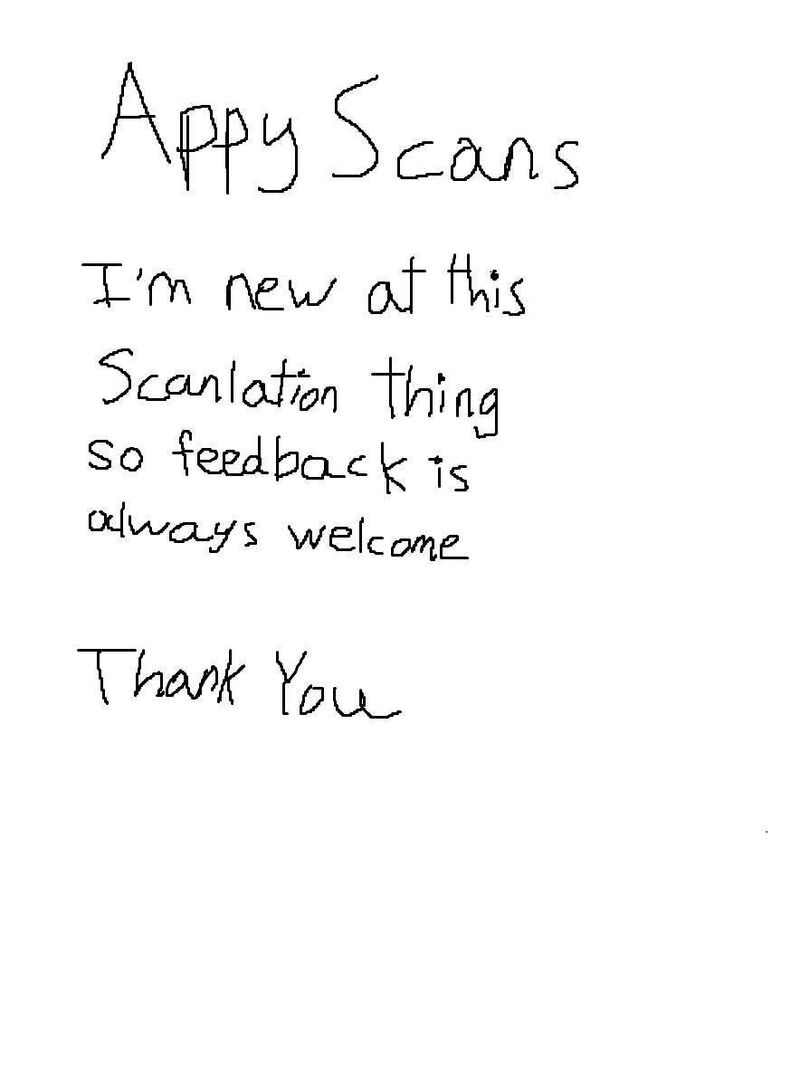 Appy Scans
I'm new at this
Scanlation thing
so feedback is
always welcome
Thank You